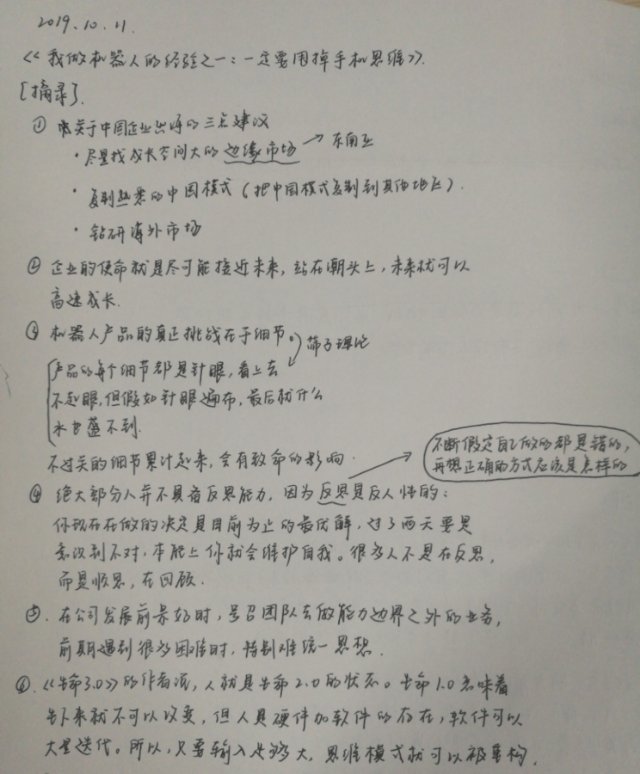 2019.10.21.
《我做机器人的经验之一：一定要用掉手机思维》.
[摘录].
① 关于中国企业出海的三点建议
· 尽量找成长空间大的边缘市场 → 东南亚
· 复制熟悉的中国模式（把中国模式复制到其他地区）.
· 钻研海外市场
② 企业的使命就是尽可能接近未来, 站在潮头上, 未来就可以
高速成长.
③ 机器人产品的真正挑战在于细节。筛子理论
产品的每个细节都是针眼, 看上去
不起眼, 但假如针眼遍布, 最后就什么
水也盛不到.
不过关的细节累计起来, 会有致命的影响.
不断假定自己做的都是错的,
再想正确的方式应该是怎样的
④ 绝大部分人并不具备反思能力, 因为反思是反人性的：
你现在在做的决定是目前为止的最优解, 过了两天要是
意识到不对, 本能上你就会维护自我。很多人不是在反思,
而是顺思, 在回顾.
⑤. 在公司发展前景好时, 号召团队去做能力边界之外的业务,
前期遇到很多困难时, 特别难统一思想.
⑥.《生命3.0》的作者说, 人就是生命2.0的状态。生命1.0意味着
生下来就不可以改变, 但人是硬件加软件的存在, 软件可以
大量迭代。所以, 只要输入足够大, 思维模式就可以被重构.